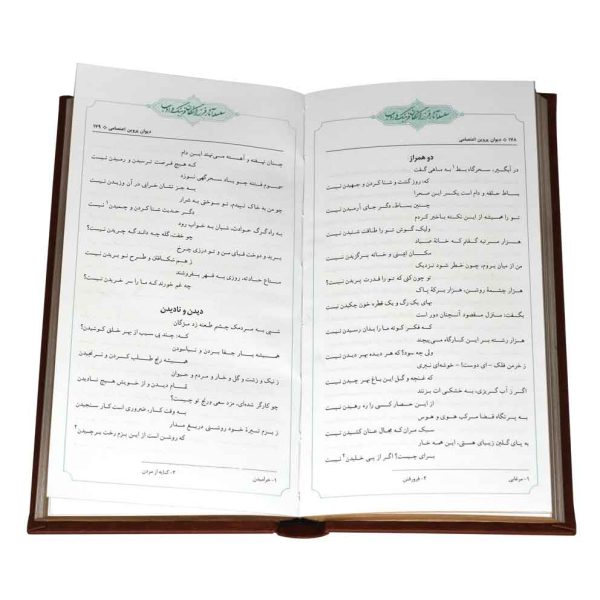 ۱۷۸ ○ دیوان پروین اعتصامی
دو همراز
در آبگیر، سحرگاه بط۱ به ماهی گفت
که: روز گشت و شنا کردن و جهیدن نیست
بساط حلقه و دام است یکسر این صحرا
چنین بساط، دگر جای آرمیدن نیست
تو را همیشه از این نکته با خبر کردم
ولیک، گوش تو را طاقت شنیدن نیست
هزار مرتبه گفتم که خانهٔ صیاد
مکان ایمنی و خانه برگزیدن نیست
من از میان بروم، چون خطر شود نزدیک
تو چون کنی که تو را قدرت پریدن نیست؟
هزار چشمهٔ روشن، هزار برکهٔ پاک
بهای یک رگ و یک قطره خون چکیدن نیست
بگفت: منزل مقصود آنچنان دور است
که فکر کوته ما را بدان رسیدن نیست
هزار رشته بر این کارگاه می‌پیچند
ولی چه سود؟ که هر دیده بهر دیدن نیست
ز خرمن فلک - ای دوست! - خوشه‌ای نبری
که غنچه و گل این باغ بهر چیدن نیست
اگر ز آب گریزی، به خشکی‌ات بزنند
از این حصار کسی را ره رهیدن نیست
به پرتگاه قضا مرکب هوی و هوس
سبک مران که مجال عنان کشیدن نیست
به پای گلبن زیبای هستی، این همه خار
برای چیست؟ اگر از پی خلیدن۲ نیست
۱- مرغابی
۲- فرورفتن
دیوان پروین اعتصامی ○ ۱۷۹
چنان نهفته و آهسته می‌نهند این دام
که هیچ فرصت ترسیدن و رمیدن نیست
سموم فتنه چو باد سحرگهی نوزد
به جز نشان خرابی در آن وزیدن نیست
چو من به خاک تپیدم، تو سوختی به شرار
دگر حدیث شنا کردن و چمیدن۱ نیست
به راه گرگ حوادث، شبان به خواب رود
چو خفت، گله چه داند که چریدن نیست
برید و دوخت قبای من و تو درزی چرخ
ز هم شکافتن و طرح نو بریدن نیست
متاع حادثه، روزی به قهر بفروشند
چه غم خورند که ما را سر خریدن نیست؟
دیدن و نادیدن
شبی به مردمک چشم طعنه زد مژگان
که: چند بی سبب از بهر خلق کوشیدن؟
همیشه بار جفا بردن و نیاسودن
همیشه رنج طلب کردن و نرنجیدن
ز نیک و زشت و گل و خار و مردم و حیوان
تمام دیدن و از خویش هیچ نادیدن
چو کارگر شده‌ای، مزد سعی ورنج تو چیست؟
به وقت کار، ضروری است کار سنجیدن
ز بزم تیرهٔ خود روشنی دریغ مدار
که روشن است از این بزم رخت برچیدن۲
۱- خرامیدن
۲- کنایه از مردن